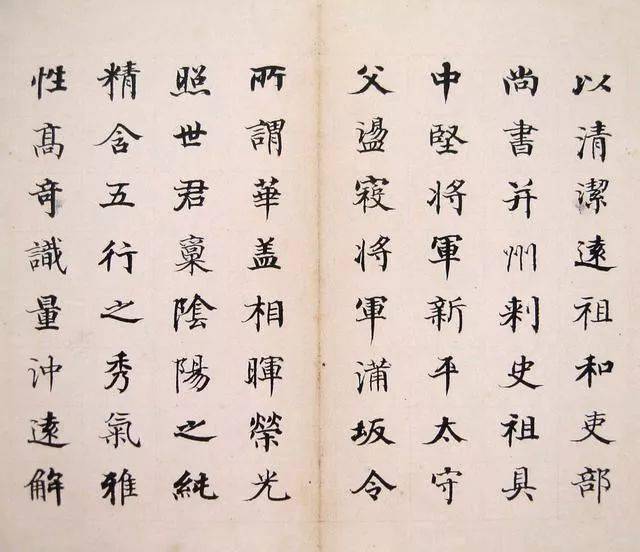 以清潔遠祖和吏部
尚書并州刺史祖具
中堅將軍新平太守
父盪寇將軍蒲坂令
所謂華盖相暉榮光
照世君稟陰陽之純
精含五行之秀氣雅
性高奇識量沖遠解